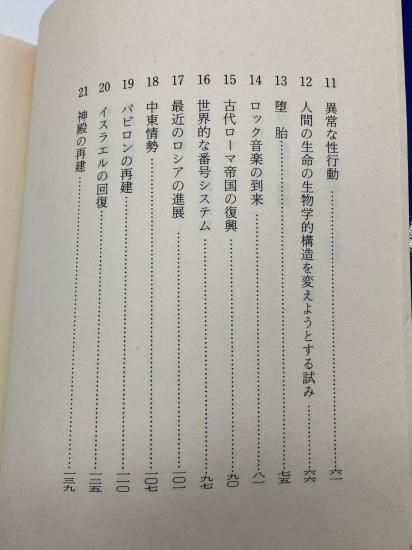 11 異常な性行動……六一
12 人間の生命の生物学的構造を変えようとする試み……六六
13 堕胎……七五
14 ロック音楽の到来……八一
15 古代ローマ帝国の復興……九〇
16 世界的な番号システム……九七
17 最近のロシアの進展……一〇一
18 中東情勢……一〇七
19 バビロンの再建……一一〇
20 イスラエルの回復……一二五
21 神殿の再建……一三九